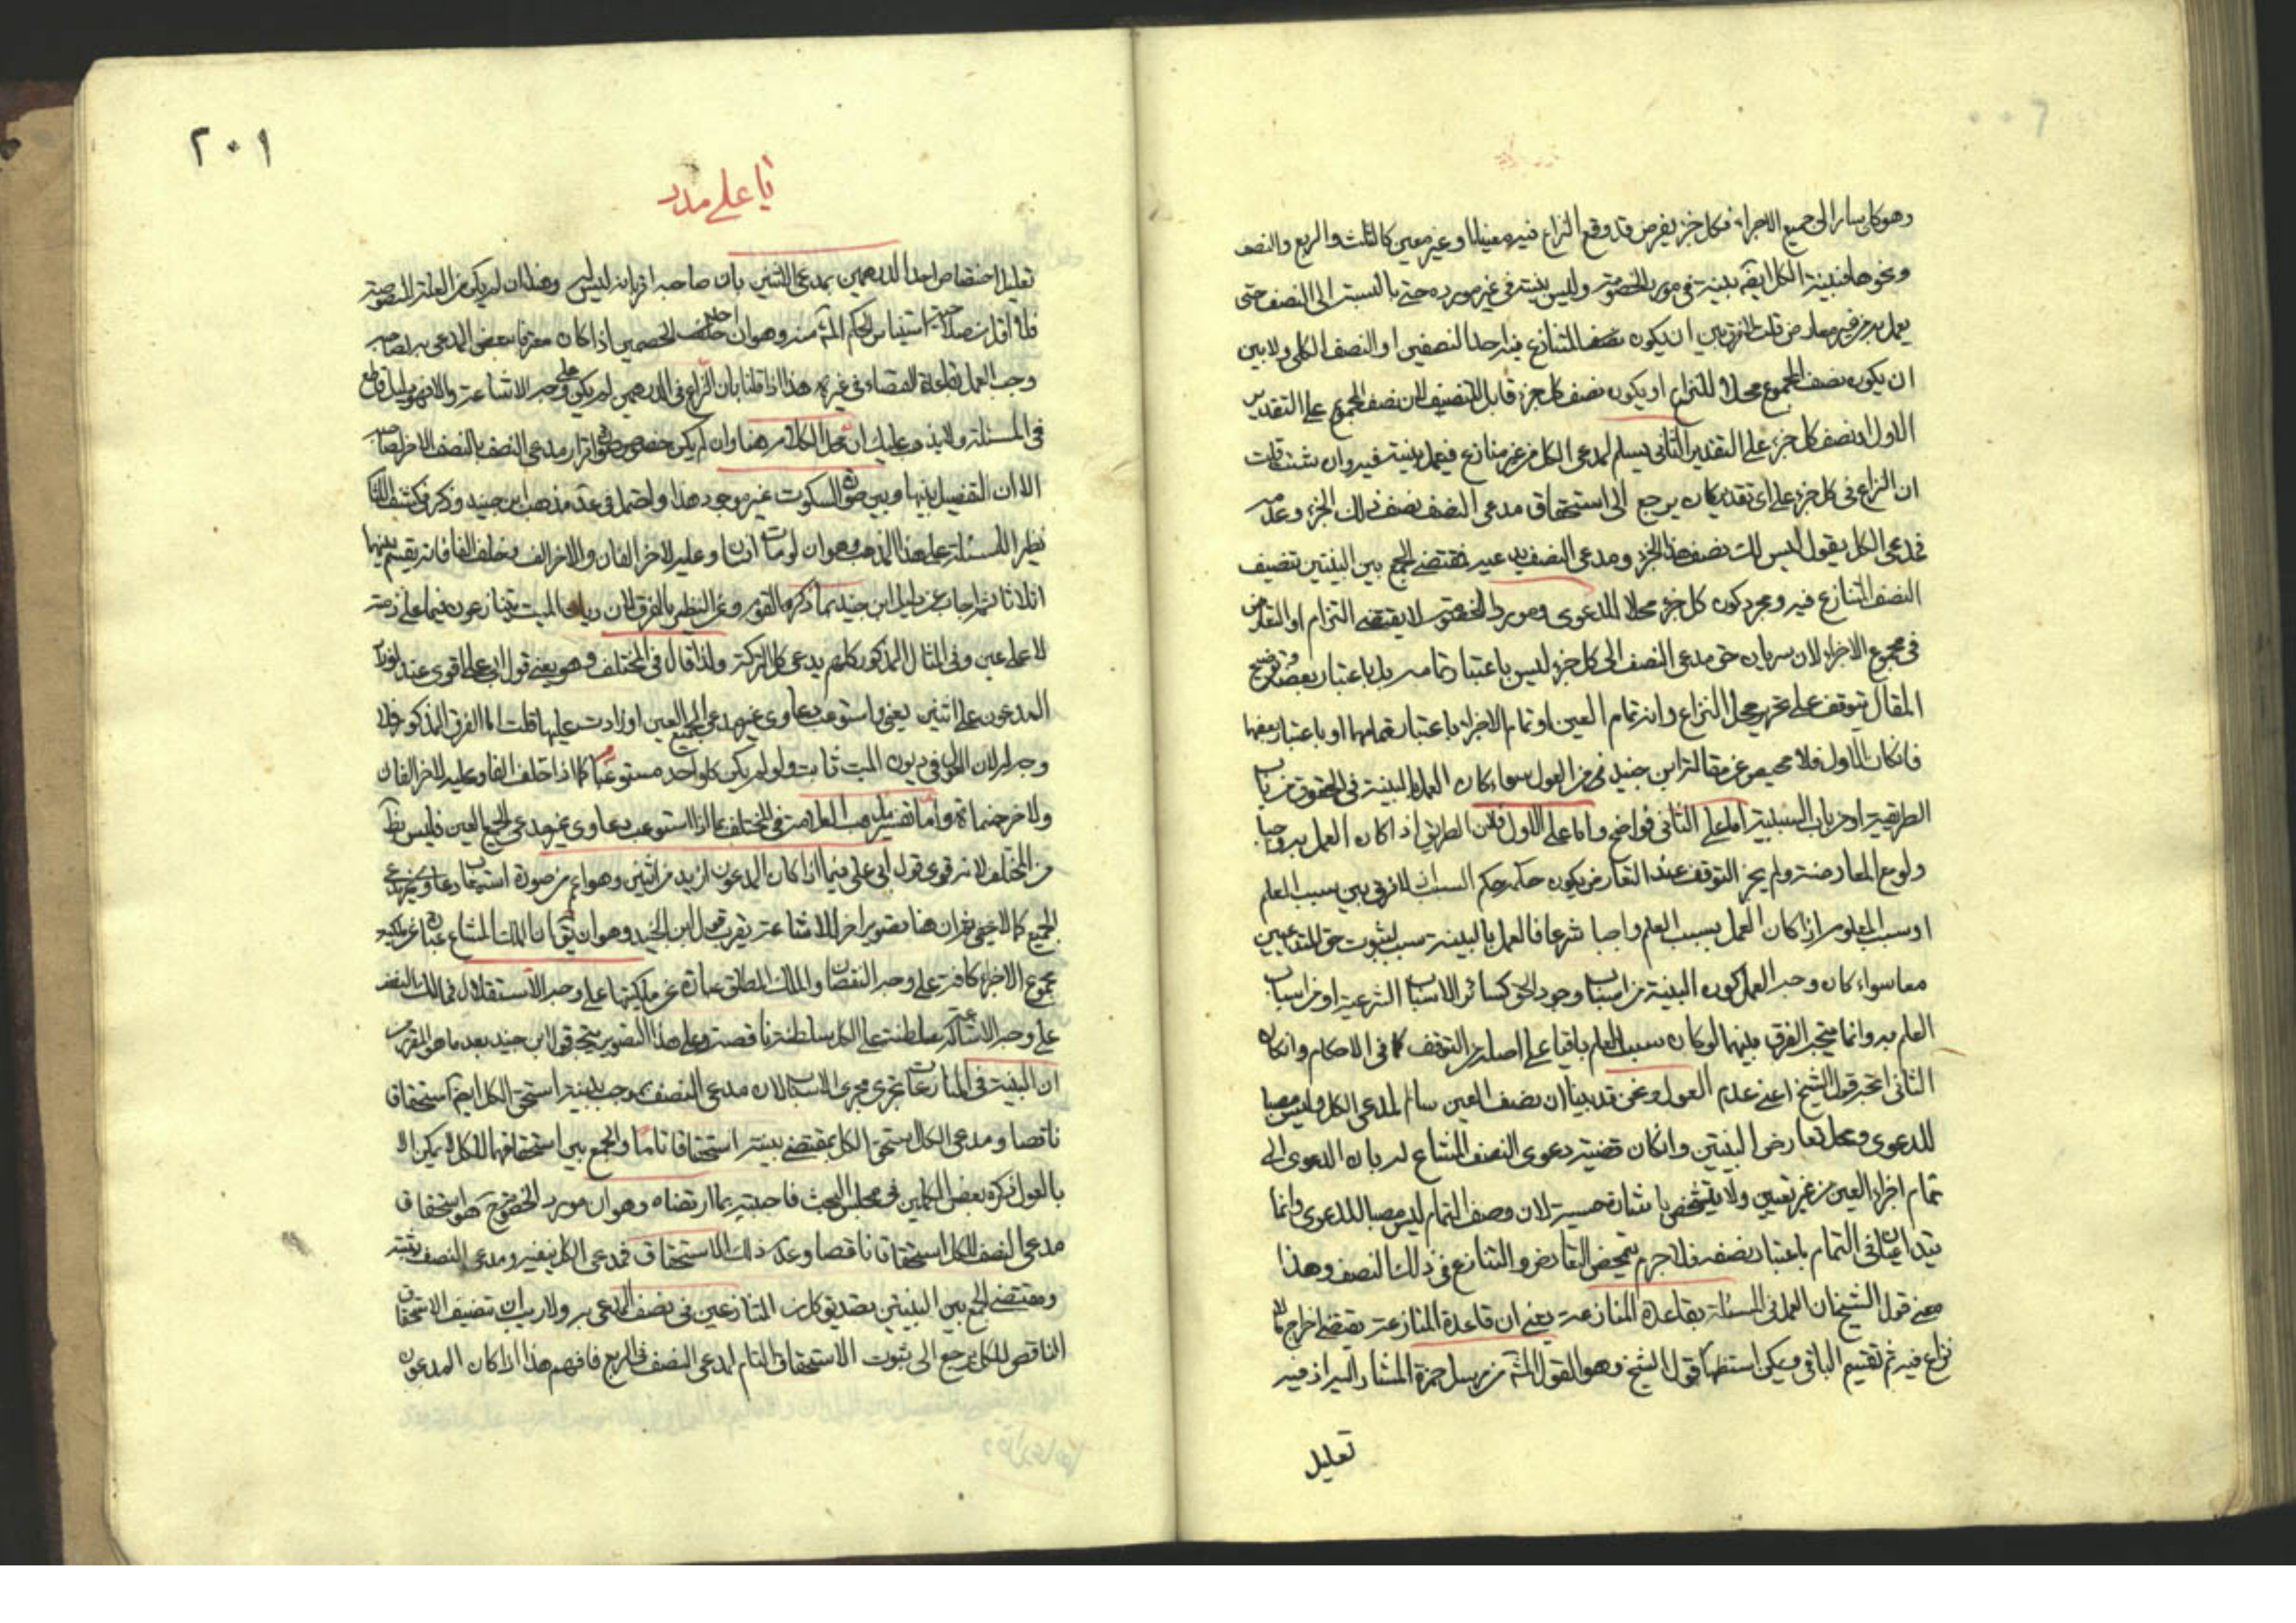 وهو كلى سار الى جميع الاجزاء فكل جزء يفرض قد وقع النزاع فيه معينا او غير معين كالثلث والربع والنصف
ونحوها فبينة الكل ايضه بينة فى مورد الخصومة وليس بينة فى غير مورده حتى بالنسبة الى النصف حتى
يعمل به من غير معارض قلت لا فرق بين ان يكون نصف المتنازع فيه احد النصفين او النصف الكلى ولا بين
ان يكون نصف المجموع محلا للنزاع او يكون نصف كل جزء قابل للتنصيف لان نصف المجموع على التقدير
الاول او نصف كل جزء على التقدير الثانى يسلم لمدعى الكل من غير منازع فيعمل ببينة فيه وان شئت قلت
ان النزاع فى كل جزء على اى تقدير كان يرجع الى استحقاق مدعى النصف نصف ذلك الجزء وعدمه
فمدعى الكل يقول ليس لك نصف هذا الجزء ومدعى النصف يدعيه فمقتضى الجمع بين البينتين تنصيف
النصف المتنازع فيه ومجرد كون كل جزء محلا للدعوى ومورد الخصومة لا يقتضى النزاع او التعارض
فى مجموع الاجزاء لان سريان حق مدعى النصف الى كل جزء ليس باعتبار تمامه بل باعتبار بعضه وتوضيح
المقال يتوقف على تحرير محل النزاع وانه تمام العين او تمام الاجزاء باعتبار تمامها او باعتبار بعضها
فان كان الاول فلا محيص عن مقالة ابن جنيد من العول سواء كان العمل بالبينة فى الحقوق من باب
الطريقية او من باب السببية اما على الثانى فواضح واما على الاول فلان الطريق اذا كان العمل به واجبا
ولو مع المعارضة ولم يجز التوقف عند التعارض يكون حكمه حكم السبب اذ لا فرق بين سبب العلم
او سبب المعلوم اذا كان العمل بسبب العلم واجبا شرعا فالعمل بالبينة سبب لثبوت حق المتداعيين
معا سواء كان وجه العمل كون البينة من اسباب وجود الحق كسائر الاسباب الشرعية او من اسباب
العلم به وانما يتجه الفرق بينهما لو كان سبب العلم باقيا على اصله من التوقف كما فى الاحكام وان كان
الثانى اتجه قول الشيخ اعنى عدم العول ونحن قد بينا ان نصف العين سالم لمدعى الكل وليس مصبا
للدعوى ومحل تعارض البينتين وان كان قضية دعوى النصف المشاع سريان الدعوى الى
تمام اجزاء العين من غير تعيين ولا تشخص باشارة حسية لان وصف التمام ليس مصبا للدعوى وانما
يتداعيان فى التمام باعتبار نصفه فلا جرم يتمحض التعارض والتنازع فى ذلك النصف وهذا
معنى قول الشيخ ان العمل فى المسئلة بقاعدة المنازعة يعنى ان قاعدة المنازعة يقتضى اخراج ما لا
نزاع فيه ثم تقسيم الباقى ويمكن استظهار قول الشيخ وهو القول المشه من مرسل حمزة المشار اليه اذ فيه
تعليل
٢٠١
يا على مدد
تعليل اختصاص احد الدرهمين بمدعى الاثنين بان صاحبه اقر بانه ليس له وهذا ان لم يكن من العلة المنصوصة
فلا اقل من صلاحية استيناس الحكم المشه منه وهو ان احد الخصمين اذا كان معترفا ببعض المدعى به لصاحبه
وجب العمل بقاعدة القضاء فى غيره هذا اذا قلنا بان النزاع فى الدرهمين لم يكن على وجه الاشاعة والا فهو دليل قاطع
فى المسئلة ولا يذهب عليك ان محل الكلام هنا وان لم يكن خصوص صورة اقرار مدعى النصف بالنصف الاخر لصاحبه
الا ان التفصيل بينها وبين صورة السكوت غير موجود هذا واحتمل فى عد مذهب ابن جنيد وذكر فى كشف اللثام
نظيرا للمسئلة على هذا المذهب وهو ان لو مات انسان وعليه لاخر الفان ولاخر الف وخلف الفا فانه يقسم بينهما
اثلاثا ثم اجاب عن دليل ابن جنيد بما ذكره القوم وعن النظير بالفرق لان ديان الميت يتنازعون فيما على ذمته
لا على عين وفى المثال المذكور كلهم يدعى كل التركة ولذا قال فى المختلف وهو يعنى قول ابى على اقوى عندى لو زاد
المدعون على اثنين يعنى واستوعب دعاوى غير مدعى الجميع العين او زادت عليها قلت اما الفرق المذكور فلا
وجه له لان العول فى ديون الميت ثابت ولو لم يكن كل واحد مستوعبا كما اذا خلف الفا وعليه لاخر الفان
ولاخر خمسمائة واما تفسير مذهب العلامة فى المختلف بما اذا استوعب دعاوى غير مدعى الجميع العين فليس بظ
من المختلف لانه قوى قول ابى على فيما اذا كان المدعون ازيد من اثنين وهو اعم من صورة استيعاب دعاوى غير مدعى
الجميع كما لا يخفى ثم ان هنا تصوير اخر للاشاعة يقرب قول ابن الجنيد وهو ان يقال ان الملك المشاع عبارة عن ملكية
مجموع الاجزاء كافة على وجه النقصان والملك المطلق عبارة عن ملكيتها على وجه الاستقلال فمالك النصف
على وجه الاشاعة له سلطنة على الكل سلطنة ناقصة وعلى هذا التصوير يتجه قول ابن جنيد بعد ما هو المقرر من
ان البينة فى المنازعات تجرى مجرى الاسباب لان مدعى النصف بموجب بينته استحق الكل ايضه استحقاقا
ناقصا ومدعى الكل استحق الكل بمقتضى بينته استحقاقا تاما والجمع بين استحقاقهما للكل لا يمكن الا
بالعول ذكره بعض الكملين فى مجلس البحث فاجبته بما ارتضاه وهو ان مورد الخصومة ح هو استحقاق
مدعى النصف للكل استحقاقا ناقصا وعدم ذلك الاستحقاق فمدعى الكل ينفيه ومدعى النصف يثبته
ومقتضى الجمع بين البينتين تصديق كل من المتنازعين فى نصف المدعى به ولا ريب ان تنصيف الاستحقاق
الناقص للكل يرجع الى ثبوت الاستحقاق التام لمدعى النصف فى الربع فافهم هذا اذا كان المدعون